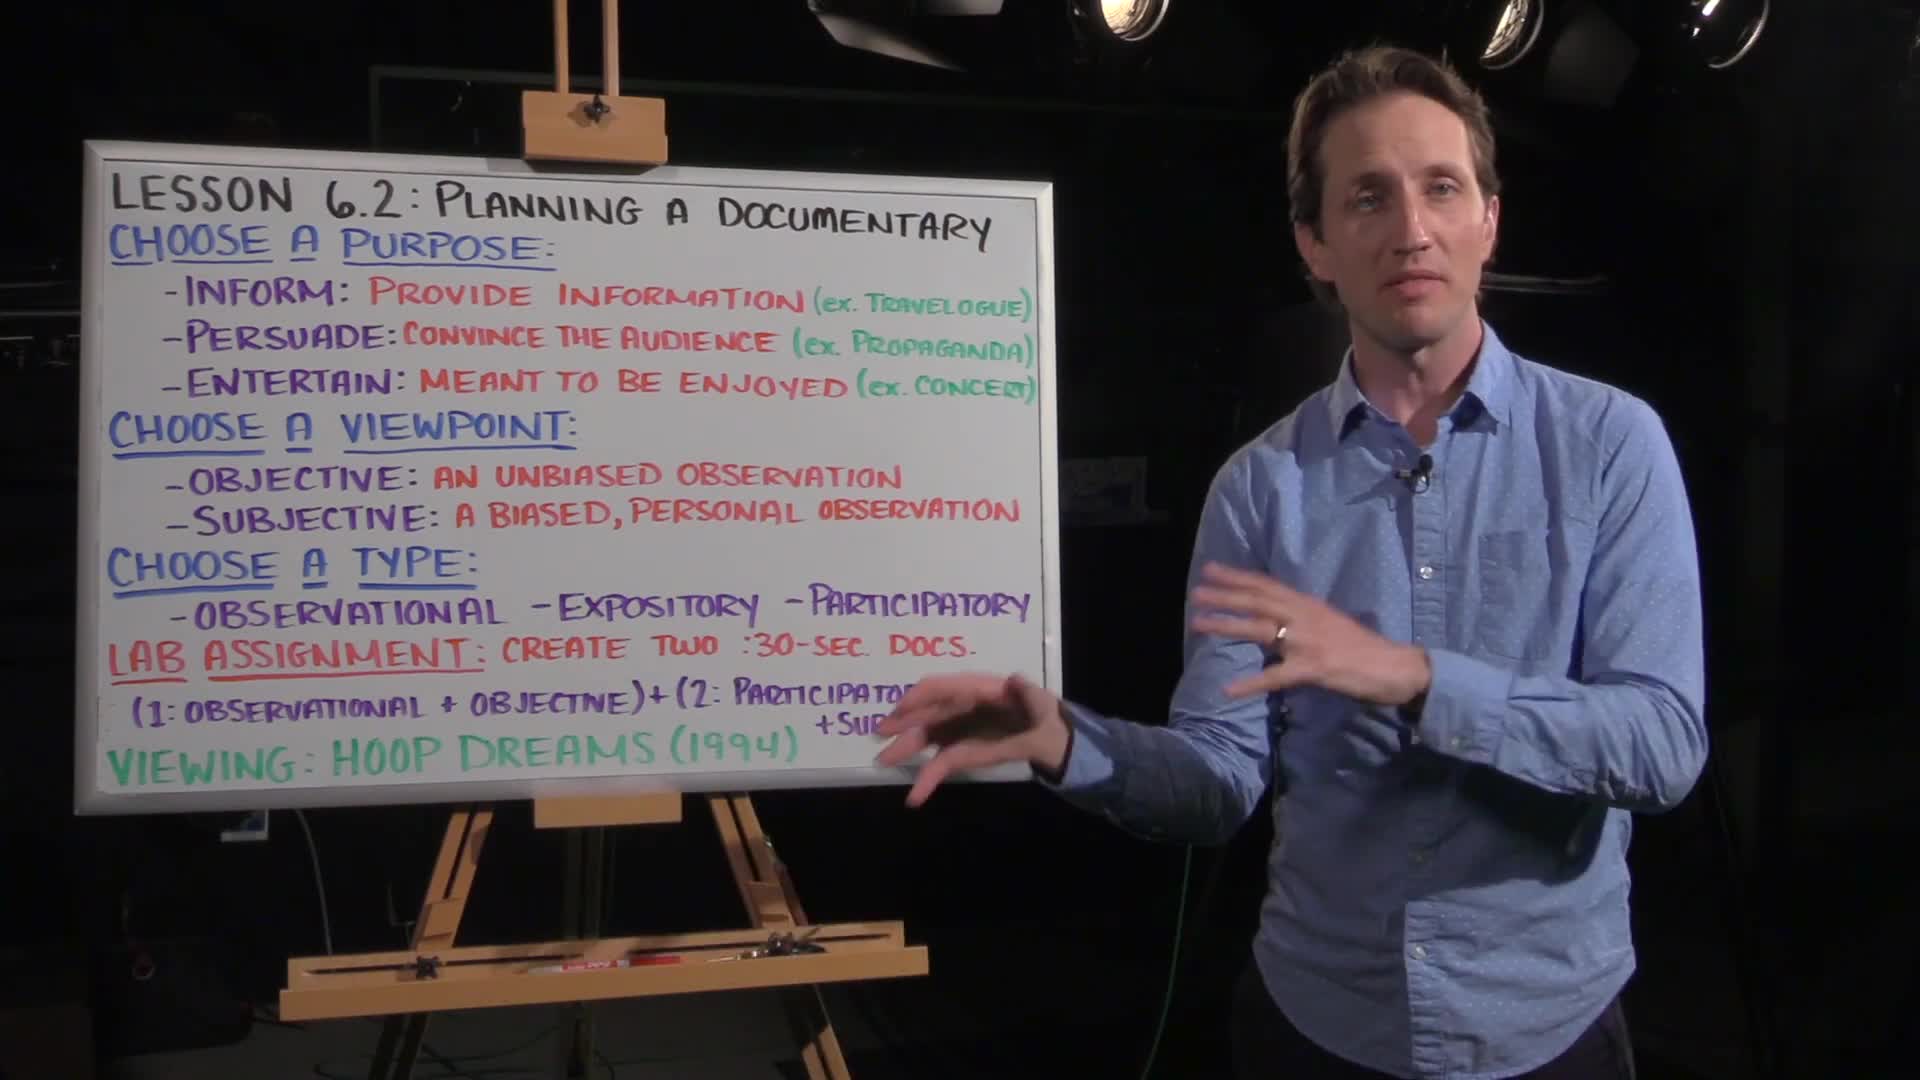 LESSON 6.2: PLANNING A DOCUMENTARY
CHOOSE A PURPOSE:
-INFORM: PROVIDE INFORMATION (ex. TRAVELOGUE)
-PERSUADE: CONVINCE THE AUDIENCE (ex. PROPAGANDA)
-ENTERTAIN: MEANT TO BE ENJOYED (ex. CONCERT)
CHOOSE A VIEWPOINT:
-OBJECTIVE: AN UNBIASED OBSERVATION
-SUBJECTIVE: A BIASED, PERSONAL OBSERVATION
CHOOSE A TYPE:
-OBSERVATIONAL -EXPOSITORY -PARTICIPATORY
LAB ASSIGNMENT: CREATE TWO :30-SEC. DOCS.
(1: OBSERVATIONAL + OBJECTIVE) + (2:
VIEWING: HOOP DREAMS (1994)